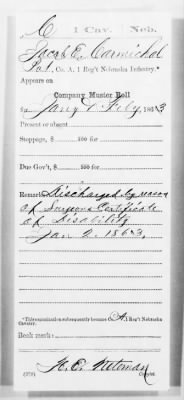 C | 1 Cav. | Neb.
Jacob E. Carmichal
Pvt, Co. A, 1 Reg't Nebraska Infantry.*
Appears on
Company Muster Roll
for Jany & Feby, 1863
Present or absent
Stoppage, $ 100 for
Due Gov't, $ 100 for
Remarks: Discharged by reason
of Surgeons Certificate
of Disability
Jan. 2. 1863,
*This organization subsequently became Co. A, 1 Reg't Nebraska
Cavalry.
Book mark:
H. E.
(379) Copyist.